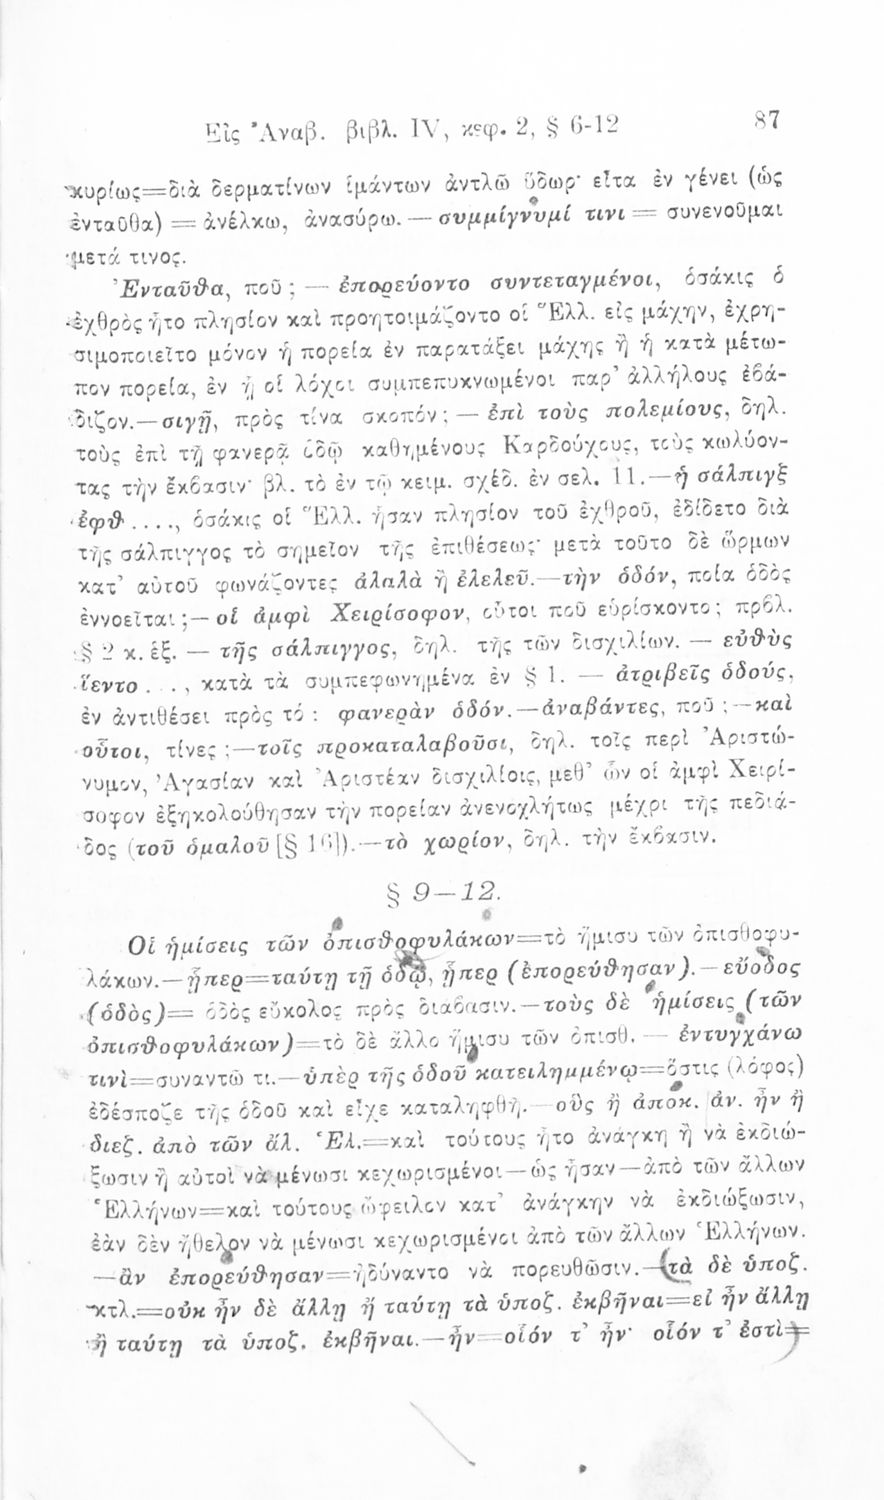 Εἰς Ἀναβ. βιβλ. IV, κεφ. 2, § 6-12 87
κυρίως=διὰ δερματίνων ἱμάντων ἀντλῶ ὕδωρ· εἶτα ἐν γένει (ὡς
ἐνταῦθα) = ἀνέλκω, ἀνασύρω. — συμμίγνυμί τινι = συνενοῦμαι
μετά τινος.
Ἐνταῦθα, ποῦ ; — ἐπορεύοντο συντεταγμένοι, ὁσάκις ὁ
ἐχθρὸς ἦτο πλησίον καὶ προητοιμάζοντο οἱ Ἕλλ. εἰς μάχην, ἐχρη-
σιμοποιεῖτο μόνον ἡ πορεία ἐν παρατάξει μάχης ἢ ἡ κατὰ μέτω-
πον πορεία, ἐν ᾗ οἱ λόχοι συμπεπυκνωμένοι παρ' ἀλλήλους ἐβά-
διζον.—σιγῇ, πρὸς τίνα σκοπόν ; — ἐπὶ τοὺς πολεμίους, δηλ.
τοὺς ἐπὶ τῇ φανερᾷ ὁδῷ καθημένους Καρδούχους, τοὺς κωλύον-
τας τὴν ἔκβασιν· βλ. τὸ ἐν τῷ κειμ. σχέδ. ἐν σελ. 11.—ἡ σάλπιγξ
ἐφθ...., ὁσάκις οἱ Ἕλλ. ἦσαν πλησίον τοῦ ἐχθροῦ, ἐδίδετο διὰ
τῆς σάλπιγγος τὸ σημεῖον τῆς ἐπιθέσεως· μετὰ τοῦτο δὲ ὥρμων
κατ' αὐτοῦ φωνάζοντες ἀλαλὰ ἢ ἐλελεῦ.—τὴν ὁδόν, ποία ὁδὸς
ἐννοεῖται ;— οἱ ἀμφὶ Χειρίσοφον, οὗτοι ποῦ εὑρίσκοντο ; πρβλ.
§ 2 κ. ἑξ. — τῆς σάλπιγγος, δηλ. τῆς τῶν δισχιλίων. — εὐθὺς
ἵεντο . . ., κατὰ τὰ συμπεφωνημένα ἐν § 1. — ἀτριβεῖς ὁδούς,
ἐν ἀντιθέσει πρὸς τό : φανερὰν ὁδόν.—ἀναβάντες, ποῦ ;—καὶ
οὗτοι, τίνες ;—τοῖς προκαταλαβοῦσι, δηλ. τοῖς περὶ Ἀριστώ-
νυμον, Ἀγασίαν καὶ Ἀριστέαν δισχιλίοις, μεθ' ὧν οἱ ἀμφὶ Χειρί-
σοφον ἐξηκολούθησαν τὴν πορείαν ἀνενοχλήτως μέχρι τῆς πεδιά-
δος (τοῦ ὁμαλοῦ [§ 16]).—τὸ χωρίον, δηλ. τὴν ἔκβασιν.
§ 9—12.
Οἱ ἡμίσεις τῶν ὀπισθοφυλάκων=τὸ ἥμισυ τῶν ὀπισθοφυ-
λάκων.—ᾗπερ=ταύτῃ τῇ ὁδῷ, ᾗπερ (ἐπορεύθησαν).—εὔοδος
(ὁδὸς)= ὁδὸς εὔκολος πρὸς διάβασιν.—τοὺς δὲ ἡμίσεις (τῶν
ὀπισθοφυλάκων)=τὸ δὲ ἄλλο ἥμισυ τῶν ὀπισθ. — ἐντυγχάνω
τινὶ=συναντῶ τι.—ὑπὲρ τῆς ὁδοῦ κατειλημμένῳ=ὅστις (λόφος)
ἐδέσποζε τῆς ὁδοῦ καὶ εἶχε καταληφθῆ.—οὓς ἢ ἀποκ. ἀν. ἦν ἢ
διεζ. ἀπὸ τῶν ἄλ. Ἑλ.=καὶ τούτους ἦτο ἀνάγκη ἢ νὰ ἐκδιώ-
ξωσιν ἢ αὐτοὶ νὰ μένωσι κεχωρισμένοι—ὡς ἦσαν—ἀπὸ τῶν ἄλλων
Ἑλλήνων=καὶ τούτους ὤφειλον κατ' ἀνάγκην νὰ ἐκδιώξωσιν,
ἐὰν δὲν ἤθελον νὰ μένωσι κεχωρισμένοι ἀπὸ τῶν ἄλλων Ἑλλήνων.
—ἂν ἐπορεύθησαν=ἠδύναντο νὰ πορευθῶσιν.—τὰ δὲ ὑποζ.
κτλ.=οὐκ ἦν δὲ ἄλλῃ ἢ ταύτῃ τὰ ὑποζ. ἐκβῆναι=εἰ ἦν ἄλλῃ
ἢ ταύτῃ τὰ ὑποζ. ἐκβῆναι.—ἦν=οἷόν τ' ἦν· οἷόν τ' ἐστὶ=